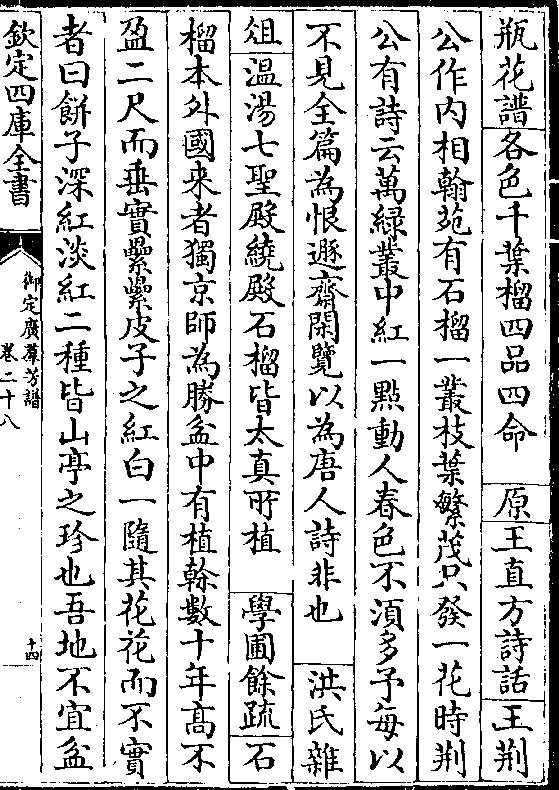 瓶花譜各色千葉榴四品四命　原王直方詩話王荆
公作内相翰苑有石榴一叢枝葉繁茂只發一花時荆
公有詩云萬緑叢中紅一點動人春色不湏多予每以
不見全篇為恨遯齋閑覽以為唐人詩非也　洪氏雜
俎温湯七聖殿繞殿石榴皆太真所植　學圃餘疏石
榴本外國来者獨京師為勝盆中有植榦數十年高不
盈二尺而垂實纍纍皮子之紅白一隨其花花而不實
者曰餅子深紅淡紅二種皆山亭之珍也吾地不宜盆
欽定四庫全書
御定廣羣芳譜
卷二十八
十四